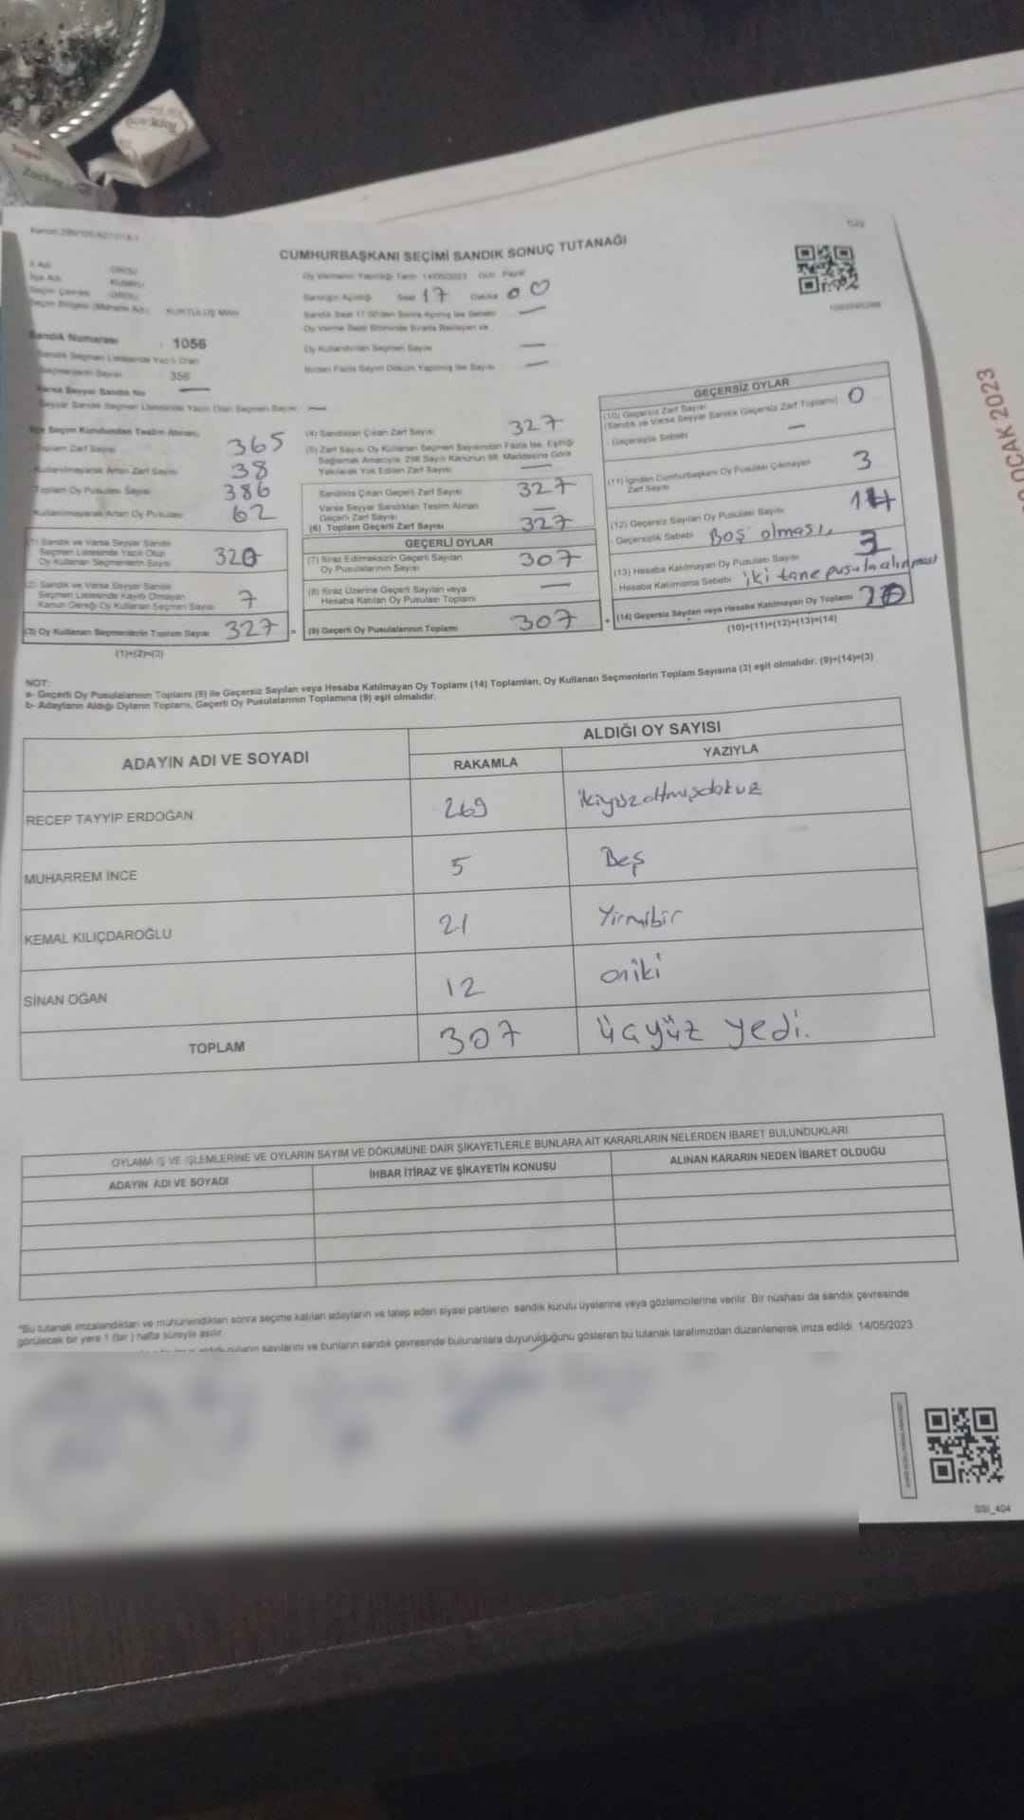 CUMHURBAŞKANI SEÇİMİ SANDIK SONUÇ TUTANAĞI
Oy Vermenin Yapıldığı Tarih 14/05/2023 Gün Pazar
Sandığın Açıldığı Saat 17 Dakika 00
Sandık Numarası 1056
356
Toplam Zarf Sayısı 365
Kullanılmayarak Artan Zarf Sayısı 38
Toplam Oy Pusulası Sayısı 386
Kullanılmayarak Artan Oy Pusulası 62
(1) Sandık ve Varsa Seyyar Sandık
Seçmen Listesinde Yazılı Olup
Oy Kullanan Seçmenlerin Sayısı 320
(2) Sandık ve Varsa Seyyar Sandık
Seçmen Listesinde Kayıtlı Olmayan
Kanun Gereği Oy Kullanan Seçmen Sayısı 7
(3) Oy Kullanan Seçmenlerin Toplam Sayısı 327
(1)+(2)=(3)
(4) Sandıktan Çıkan Zarf Sayısı 327
Sandıkta Çıkan Geçerli Zarf Sayısı 327
Varsa Seyyar Sandıktan Teslim Alınan
Geçerli Zarf Sayısı —
(6) Toplam Geçerli Zarf Sayısı 327
GEÇERLİ OYLAR
(7) İtiraz Edilmeksizin Geçerli Sayılan
Oy Pusulalarının Sayısı 307
(8) İtiraz Üzerine Geçerli Sayılan veya
Hesaba Katılan Oy Pusulası Toplamı —
(9) Geçerli Oy Pusulalarının Toplamı 307
GEÇERSİZ OYLAR
(10) Geçersiz Zarf Sayısı
(Sandık ve Varsa Seyyar Sandık Geçersiz Zarf Toplamı) 0
Geçersizlik Sebebi —
(11) İçinden Cumhurbaşkanı Oy Pusulası Çıkmayan
Zarf Sayısı 3
(12) Geçersiz Sayılan Oy Pusulası Sayısı 14
Geçersizlik Sebebi Boş olması,
(13) Hesaba Katılmayan Oy Pusulası Sayısı 3
Hesaba Katılmama Sebebi iki tane pusula alınması
(14) Geçersiz Sayılan veya Hesaba Katılmayan Oy Toplamı 20
(10)+(11)+(12)+(13)=(14)
NOT:
a- Geçerli Oy Pusulalarının Toplamı (9) ile Geçersiz Sayılan veya Hesaba Katılmayan Oy Toplamı (14) Toplamları, Oy Kullanan Seçmenlerin Toplam Sayısına (3) eşit olmalıdır. (9)+(14)=(3)
b- Adayların Aldığı Oyların Toplamı, Geçerli Oy Pusulalarının Toplamına (9) eşit olmalıdır.
ADAYIN ADI VE SOYADI
ALDIĞI OY SAYISI
RAKAMLA YAZIYLA
RECEP TAYYİP ERDOĞAN 269 ikiyüzaltmışdokuz
MUHARREM İNCE 5 Beş
KEMAL KILIÇDAROĞLU 21 Yirmibir
SİNAN OĞAN 12 oniki
TOPLAM 307 üçyüz yedi.
OYLAMA İŞ VE İŞLEMLERİNE VE OYLARIN SAYIM VE DÖKÜMÜNE DAİR ŞİKAYETLERLE BUNLARA AİT KARARLARIN NELERDEN İBARET BULUNDUKLARI
ADAYIN ADI VE SOYADI İHBAR İTİRAZ VE ŞİKAYETİN KONUSU ALINAN KARARIN NEDEN İBARET OLDUĞU
"Bu tutanak imzalandıktan ve mühürlendikten sonra seçime katılan adayların ve talep eden siyasi partilerin sandık kurulu üyelerine veya gözlemcilerine verilir. Bir nüshası da sandık çevresinde
görülecek bir yere 1 (bir) hafta süreyle asılır.
sayılarını ve bunların sandık çevresinde bulunanlara duyurulduğunu gösteren bu tutanak tarafımızdan düzenlenerek imza edildi. 14/05/2023
SSI_404
OCAK 2023